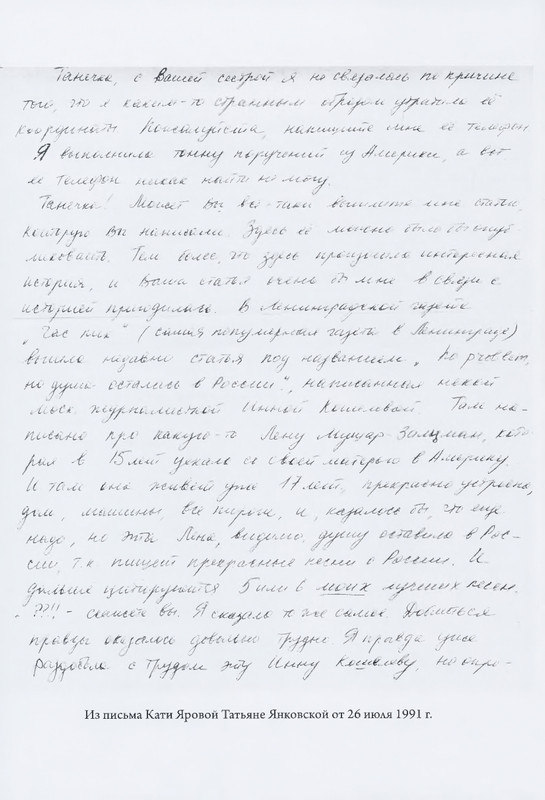 Танечка, с Вашей сестрой я не связалась по причине
того, что я каким-то странным образом утратила её
координаты. Пожалуйста, напишите мне её телефон.
Я выполнила тонну поручений из Америки, а вот
её телефон никак найти не могу.
Танечка! Может Вы всё-таки вышлете мне статью,
которую Вы написали. Здесь её можно было бы опуб-
ликовать. Тем более, что здесь произошла интересная
история, и Ваша статья очень бы мне в связи с
историей пригодилась. В Ленинградской газете
„Час пик" (самая популярная газета в Ленинграде)
вышла недавно статья под названием „
но душа осталась в России", написанная некой
моск. журналисткой Инной Кошелевой. Там на-
писано про какую-то Лену Зальцман, кото-
рая в 15 лет уехала со своей матерью в Америку.
И там она живёт уже 17 лет, прекрасно устроена,
дом, машины, все пироги, и, казалось бы, что ещё
надо, но эта Лена, видимо, душу оставила в Рос-
сии, т.к. пишет прекрасные песни о России. И
дальше цитируется 5 или 6 моих лучших песен.
- ??!! - скажете вы. Я сказала то же самое. Добиться
правды оказалось довольно трудно. Я правда уже
раздобыла с трудом эту Инну Кошелеву, но опро-
Из письма Кати Яровой Татьяне Янковской от 26 июля 1991 г.